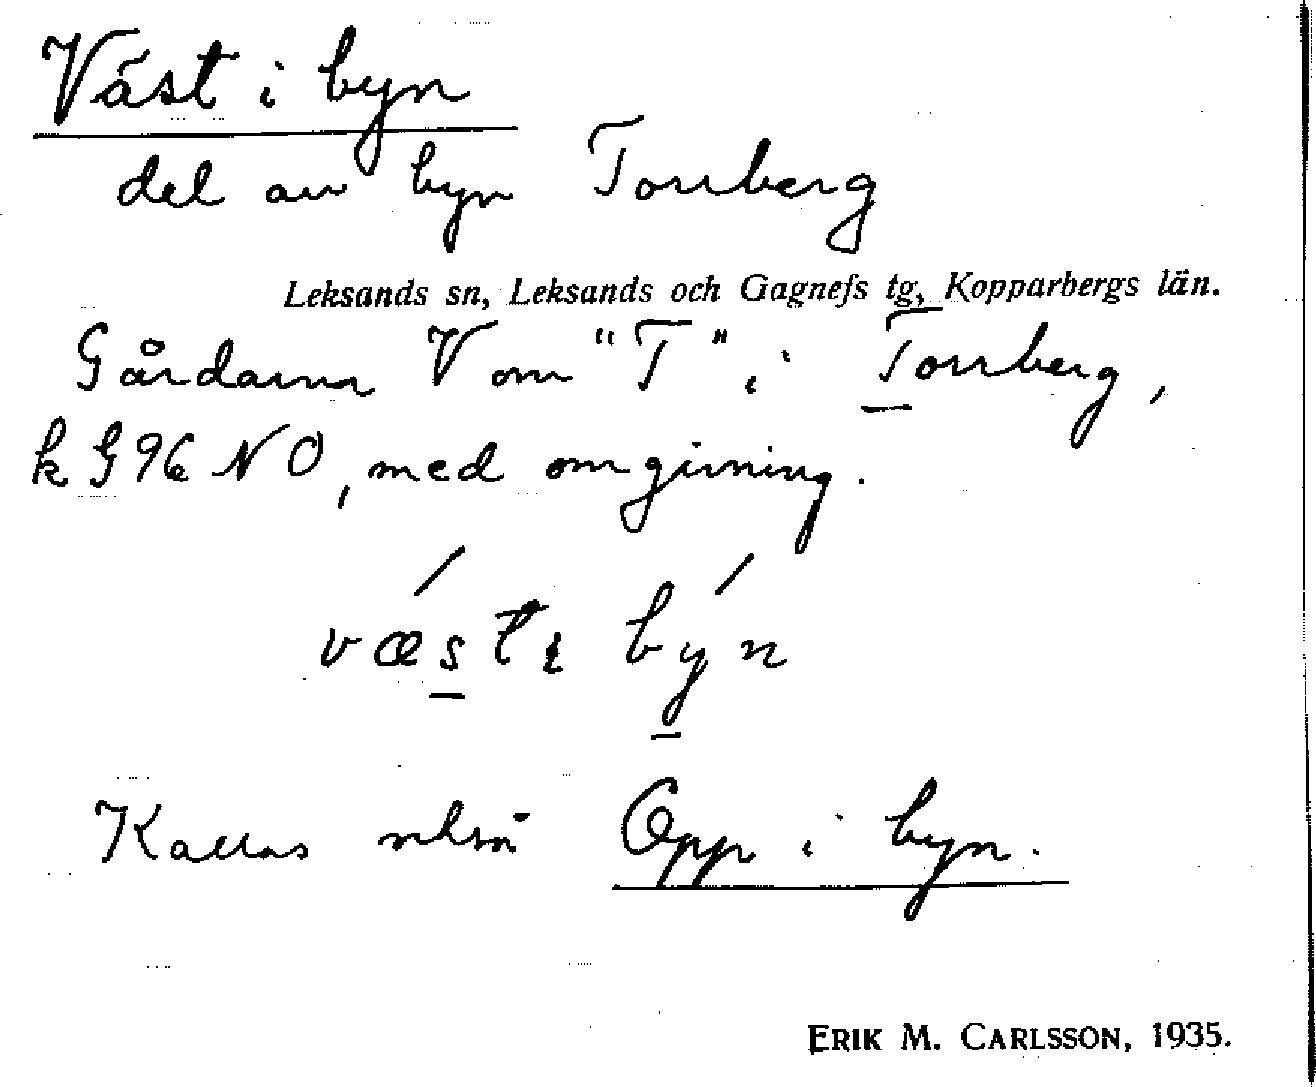 Väst i byn
del av byn Torrberg
Leksands sn, Leksands och Gagnefs tg, Kopparbergs län.
Gårdarna V om "T" i Torrberg,
k G 96 NO, med omgivning.
væ´stı by´n
Kallas också Opp i byn.
ERIK M. CARLSSON, 1935.